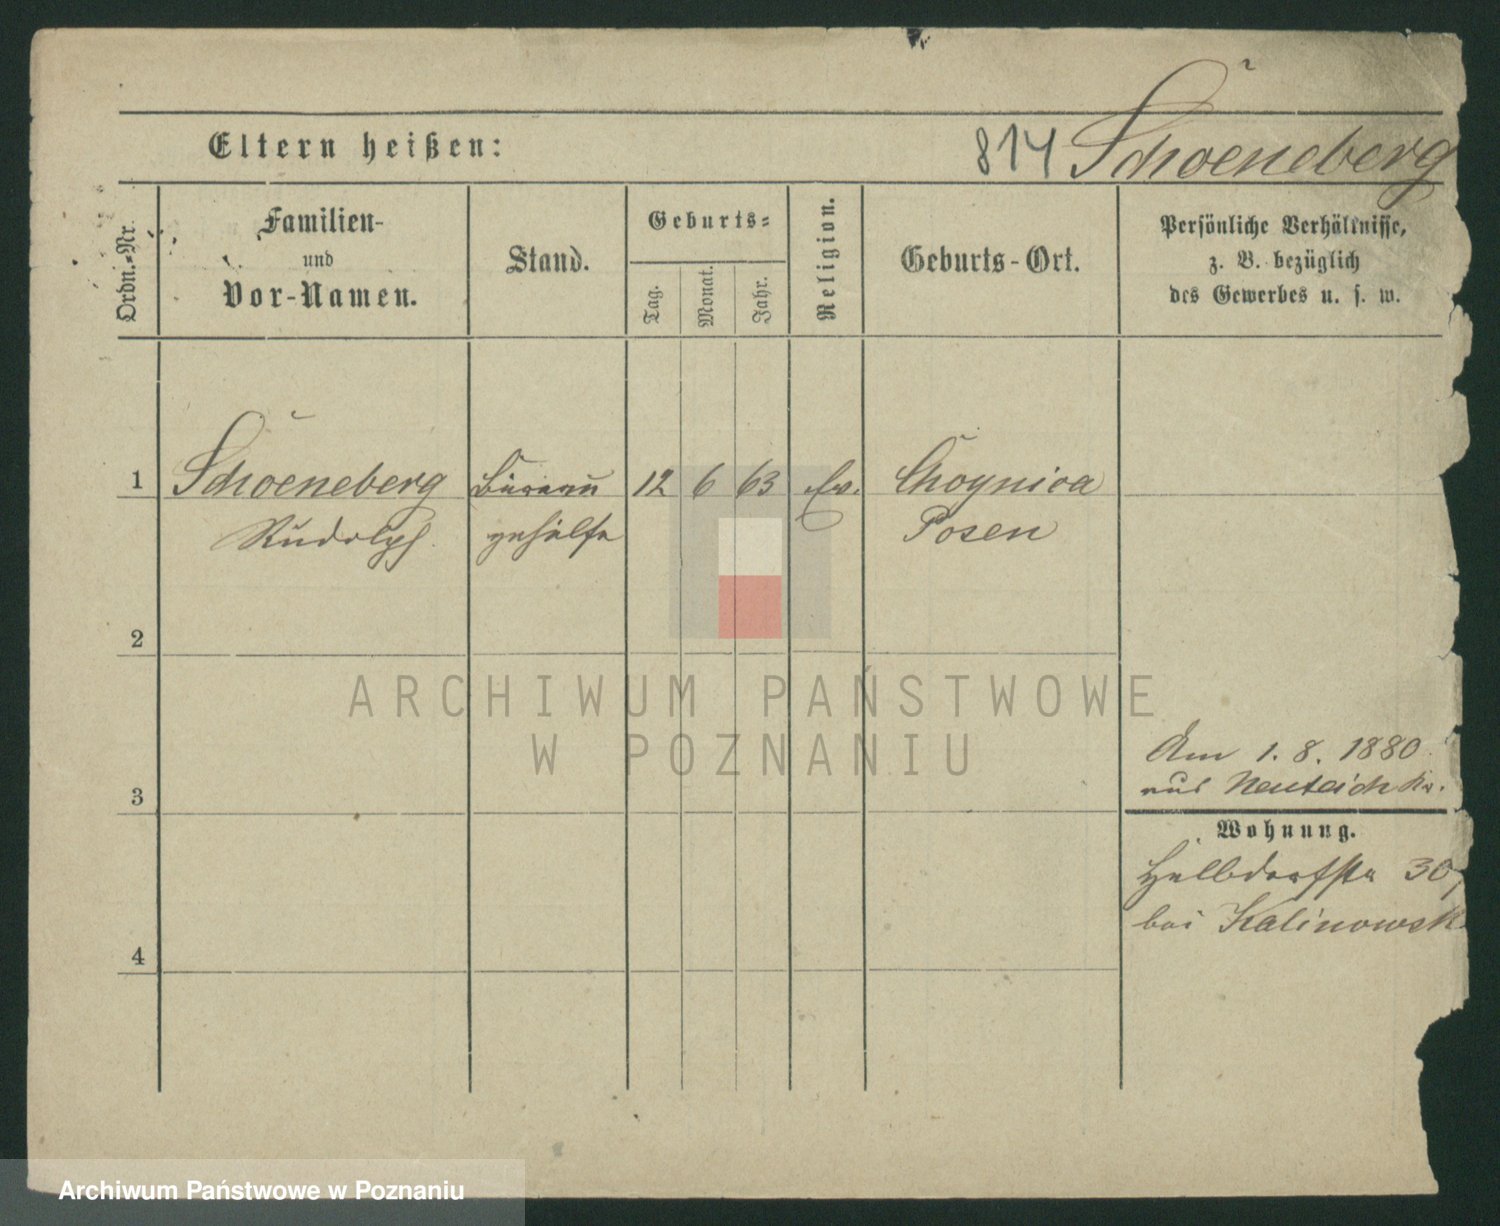 Eltern heißen:
814 Schoeneberg
Ordn.-Nr.
Familien-
und
Vor-Namen.
Stand.
Geburts-
Tag.
Monat.
Jahr.
Religion.
Geburts-Ort.
Persönliche Verhältnisse,
z. B. bezüglich
des Gewerbes u. s. w.
1 Schoeneberg Büreau 12 6 63 Ev. Choynica
Rudolph gehülfe Posen
2
ARCHIWUM PAŃSTWOWE
W POZNANIU
Am 1. 8. 1880
aus Neuteich
3
Wohnung.
Halbdorfstr 30,
bei Kalinowsk
4
Archiwum Państwowe w Poznaniu